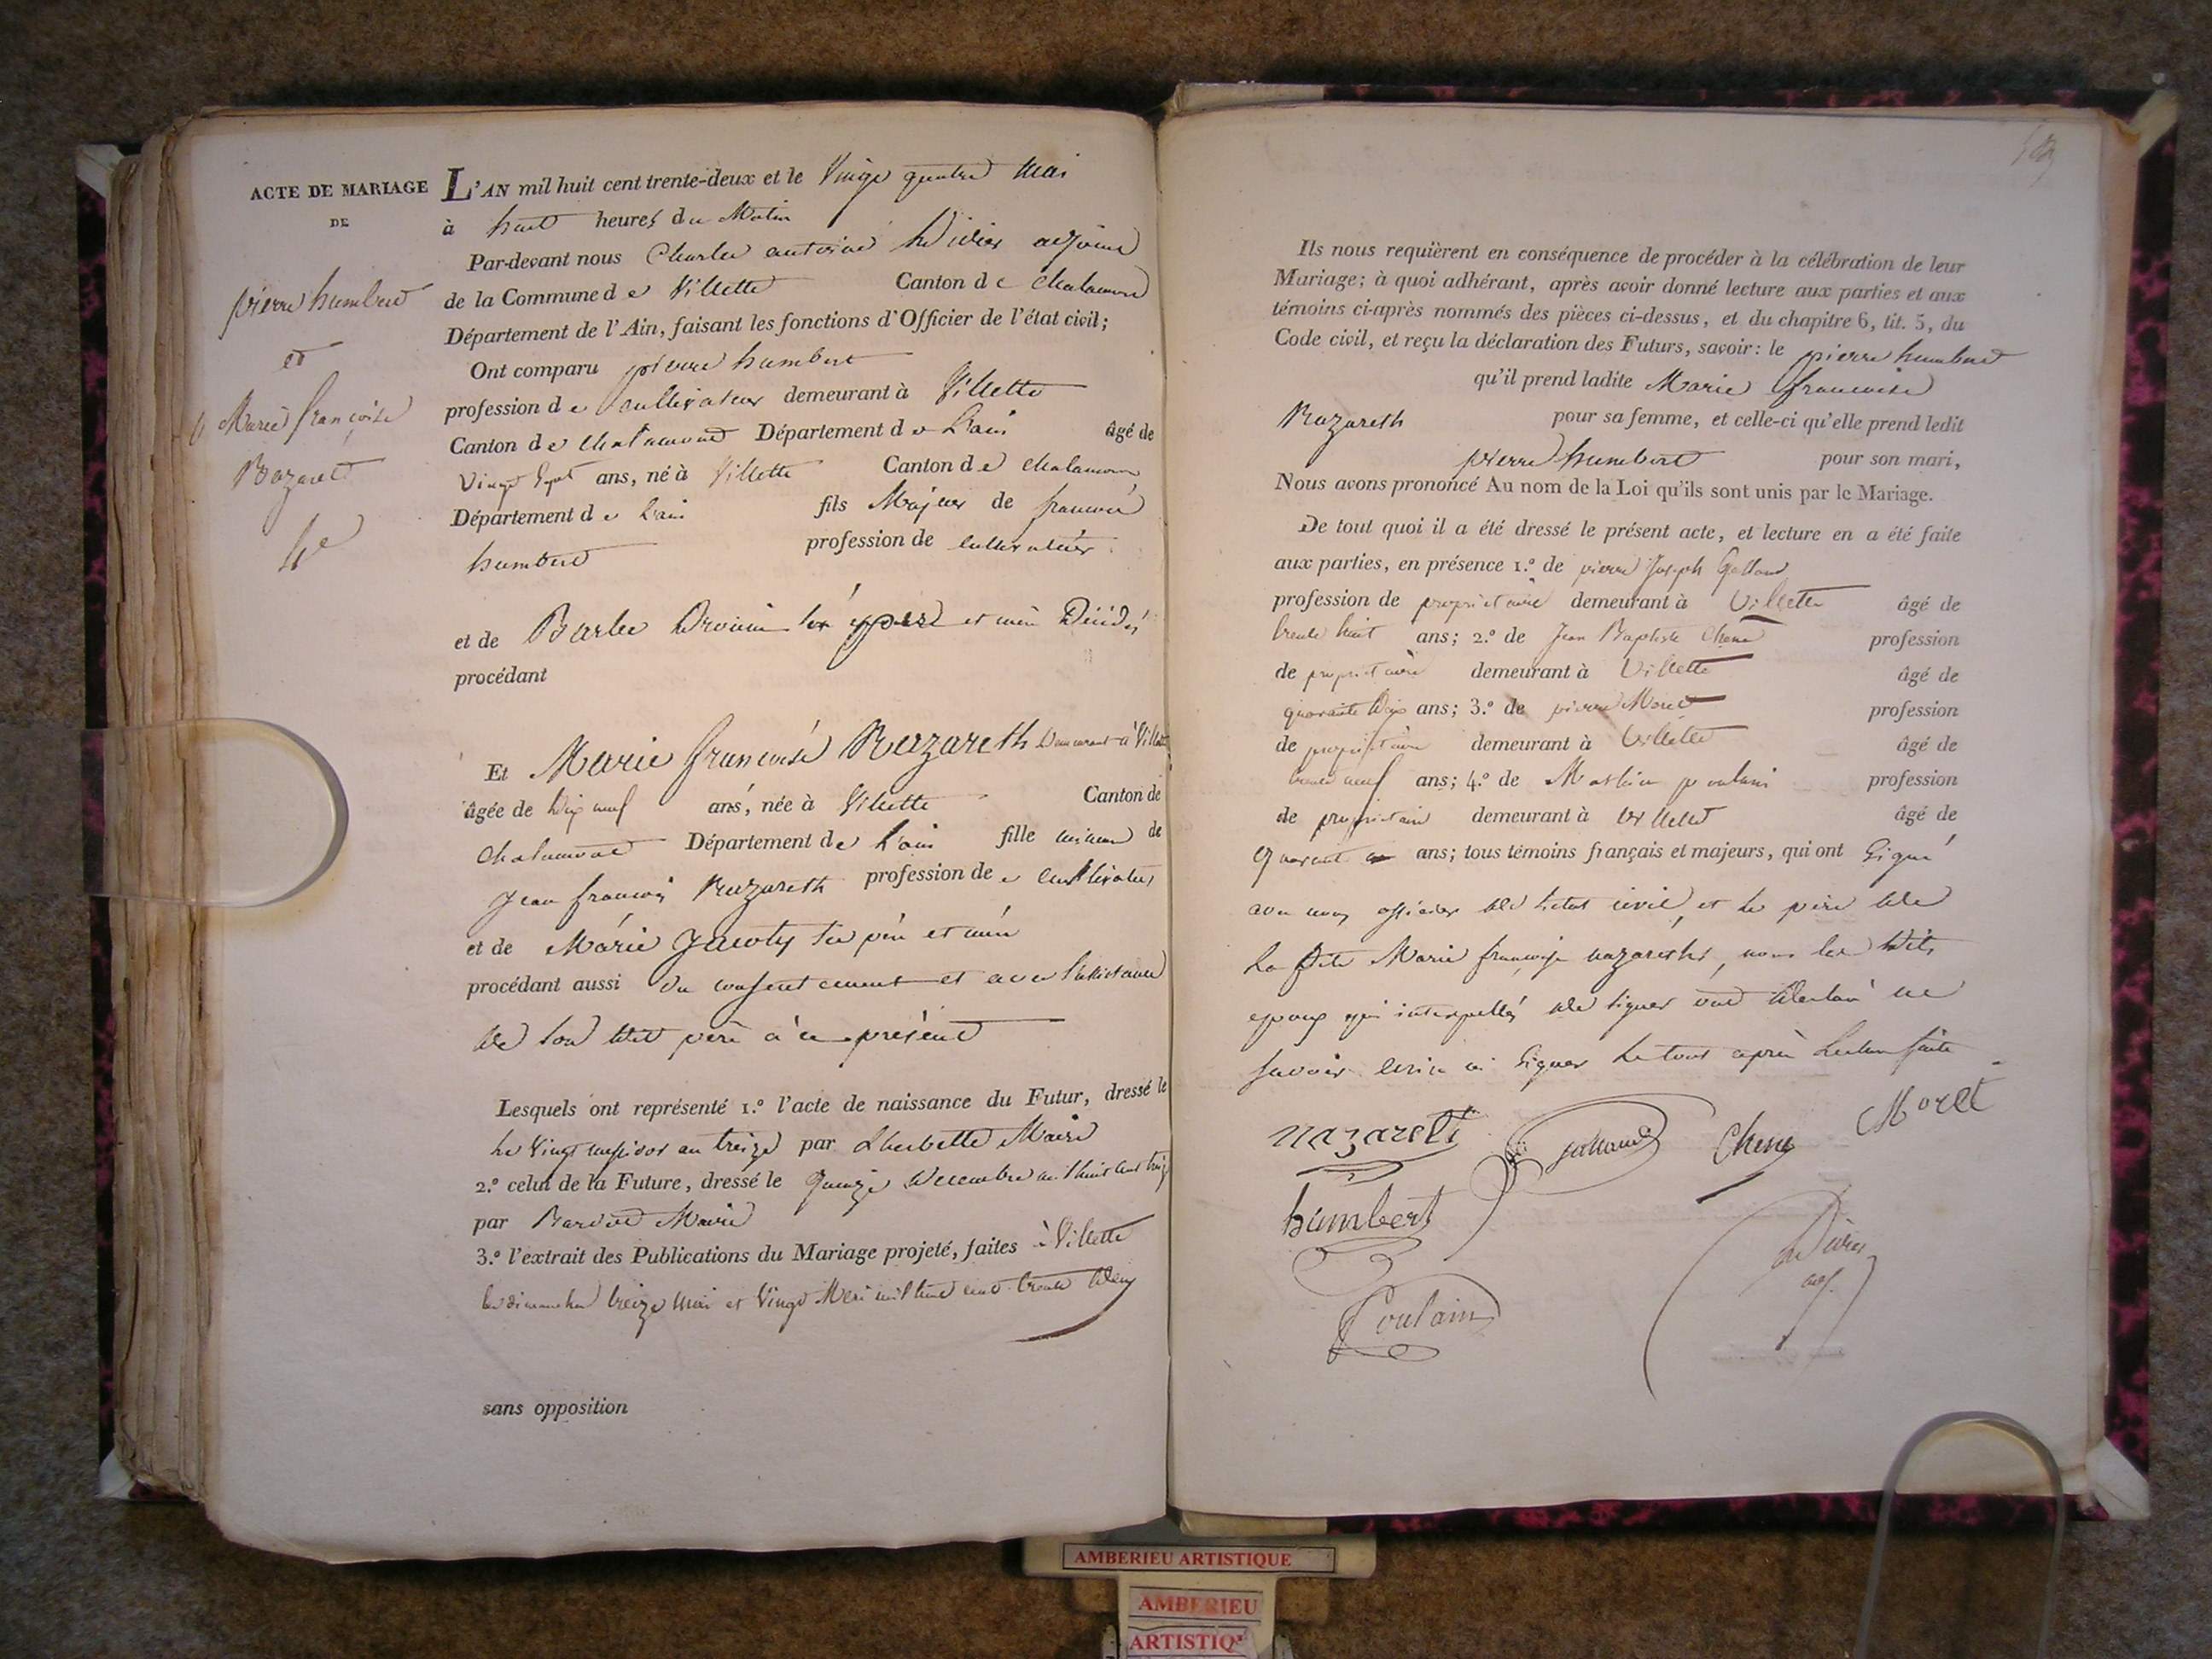 ACTE DE MARIAGE
DE
pierre humbert
et
Marie françoise
Nazaret
4e
L'AN mil huit cent trente-deux et le Vingt quatre Mai
à huit heures du Matin
Par-devant nous Charles antoine Didier adjoint
de la Commune de Villette Canton de chalamont
Département de l'Ain, faisant les fonctions d'Officier de l'état civil;
Ont comparu pierre humbert
profession de cultivateur demeurant à Villette
Canton de chalamont Département de L'ain âgé de
Vingt Sept ans, né à Villette Canton de chalamont
Département de L'ain fils Majeur de francois
humbert profession de cultivateur
et de Barbe Drouin ses père et mère Décidés
procédant
Et Marie francoise Nazareth Demeurant à Villette
âgée de Dix neuf ans, née à Villette Canton de
chalamont Département de L'ain fille mineure de
Jean francois Nazareth profession de cultivateur
et de Marie Jacoty ses père et mère
procédant aussi du consentement et avec l'assistance
de son dit père à ce présent
Lesquels ont représenté 1.º l'acte de naissance du Futur, dressé le
le Vingt messidor an treize par Lherbette Maire
2.º celui de la Future, dressé le quinze decembre mil huit cent
par Maire
3.º l'extrait des Publications du Mariage projeté, faites à Villette
les dimanches treize mai et Vingt Mai mil huit cent trente deux
sans opposition
Ils nous requièrent en conséquence de procéder à la célébration de leur
Mariage; à quoi adhérant, après avoir donné lecture aux parties et aux
témoins ci-après nommés des pièces ci-dessus, et du chapitre 6, tit. 5, du
Code civil, et reçu la déclaration des Futurs, savoir: le pierre humbert
qu'il prend ladite Marie francoise
Nazareth pour sa femme, et celle-ci qu'elle prend ledit
pierre humbert pour son mari,
Nous avons prononcé Au nom de la Loi qu'ils sont unis par le Mariage.
De tout quoi il a été dressé le présent acte, et lecture en a été faite
aux parties, en présence 1.º de pierre Joseph Galland
profession de propriétaire demeurant à Villette âgé de
trente huit ans; 2.º de Jean Baptiste Chene profession
de propriétaire demeurant à Villette âgé de
quarante Dix ans; 3.º de pierre Moret profession
de propriétaire demeurant à Villette âgé de
trente neuf ans; 4.º de poulain profession
de propriétaire demeurant à Villette âgé de
quarante ans; tous témoins français et majeurs, qui ont Signé
avec nous officier de l'etat civil, et le père de
la dite Marie françoise nazareth, non les dits
epoux qui interpellés de signer ont declaré ne
savoir ecrire ni signer le tout après Lecture faite
nazareth galland Chene Moret
humbert
Didier
adj.
Poulain
AMBERIEU ARTISTIQUE
AMBERIEU
ARTISTIQ